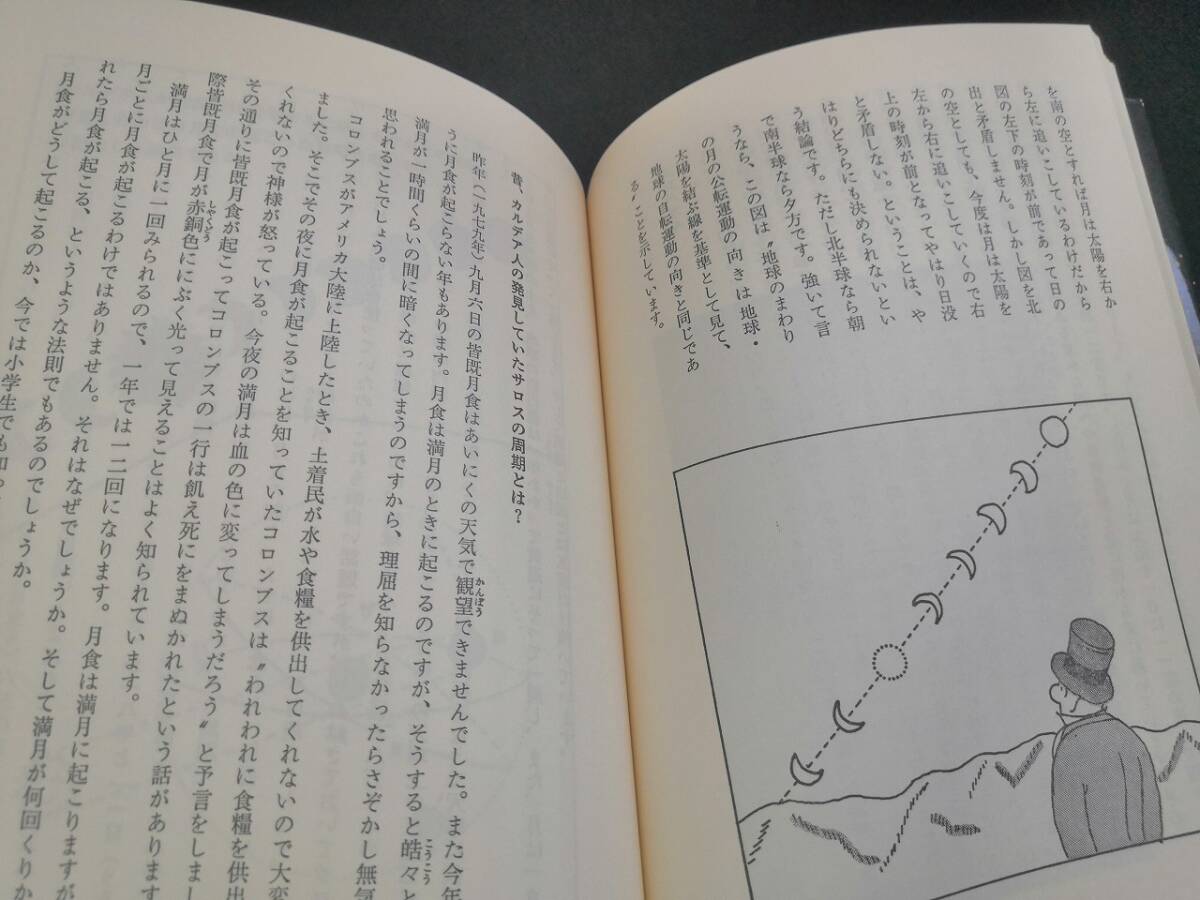 を南の空とすれば月は太陽を右か
ら左に追いこしているわけだから
図の左下の時刻が前であって日の
出と矛盾しません。しかし図を北
の空としても、今度は月は太陽を
左から右に追いこしていくので右
上の時刻が前となってやはり日没
と矛盾しない。ということは、や
はりどちらにも決められないとい
う結論です。ただし北半球なら朝
で南半球なら夕方です。強いて言
うなら、この図は〝地球のまわり
の月の公転運動の向きは地球・
太陽を結ぶ線を基準として見て、
地球の自転運動の向きと同じであ
る〟ことを示しています。
昔、カルデア人の発見していたサロスの周期とは?
昨年(一九七九年)九月六日の皆既月食はあいにくの天気で観望できませんでした。また今年
かんぼう
うに月食が起こらない年もあります。月食は満月のときに起こるのですが、そうすると皓々と
こうこう
満月が一時間くらいの間に暗くなってしまうのですから、理屈を知らなかったらさぞかし無気
思われることでしょう。
コロンブスがアメリカ大陸に上陸したとき、土着民が水や食糧を供出してくれないので大変
ました。そこでその夜に月食が起こることを知っていたコロンブスは〝われわれに食糧を供出
くれないので神様が怒っている。今夜の満月は血の色に変ってしまうだろう〟と予言をしまし
その通りに皆既月食が起こってコロンブスの一行は飢え死にをまぬかれたという話があります
際皆既月食で月が赤銅色ににぶく光って見えることはよく知られています。
しゃくどう
満月はひと月に一回みられるので、一年では一二回になります。月食は満月に起こりますが
月ごとに月食が起こるわけではありません。それはなぜでしょうか。そして満月が何回くりか
れたら月食が起こる、というような法則でもあるのでしょうか。
月食がどうして起こるのか、今では小学生でも知っ